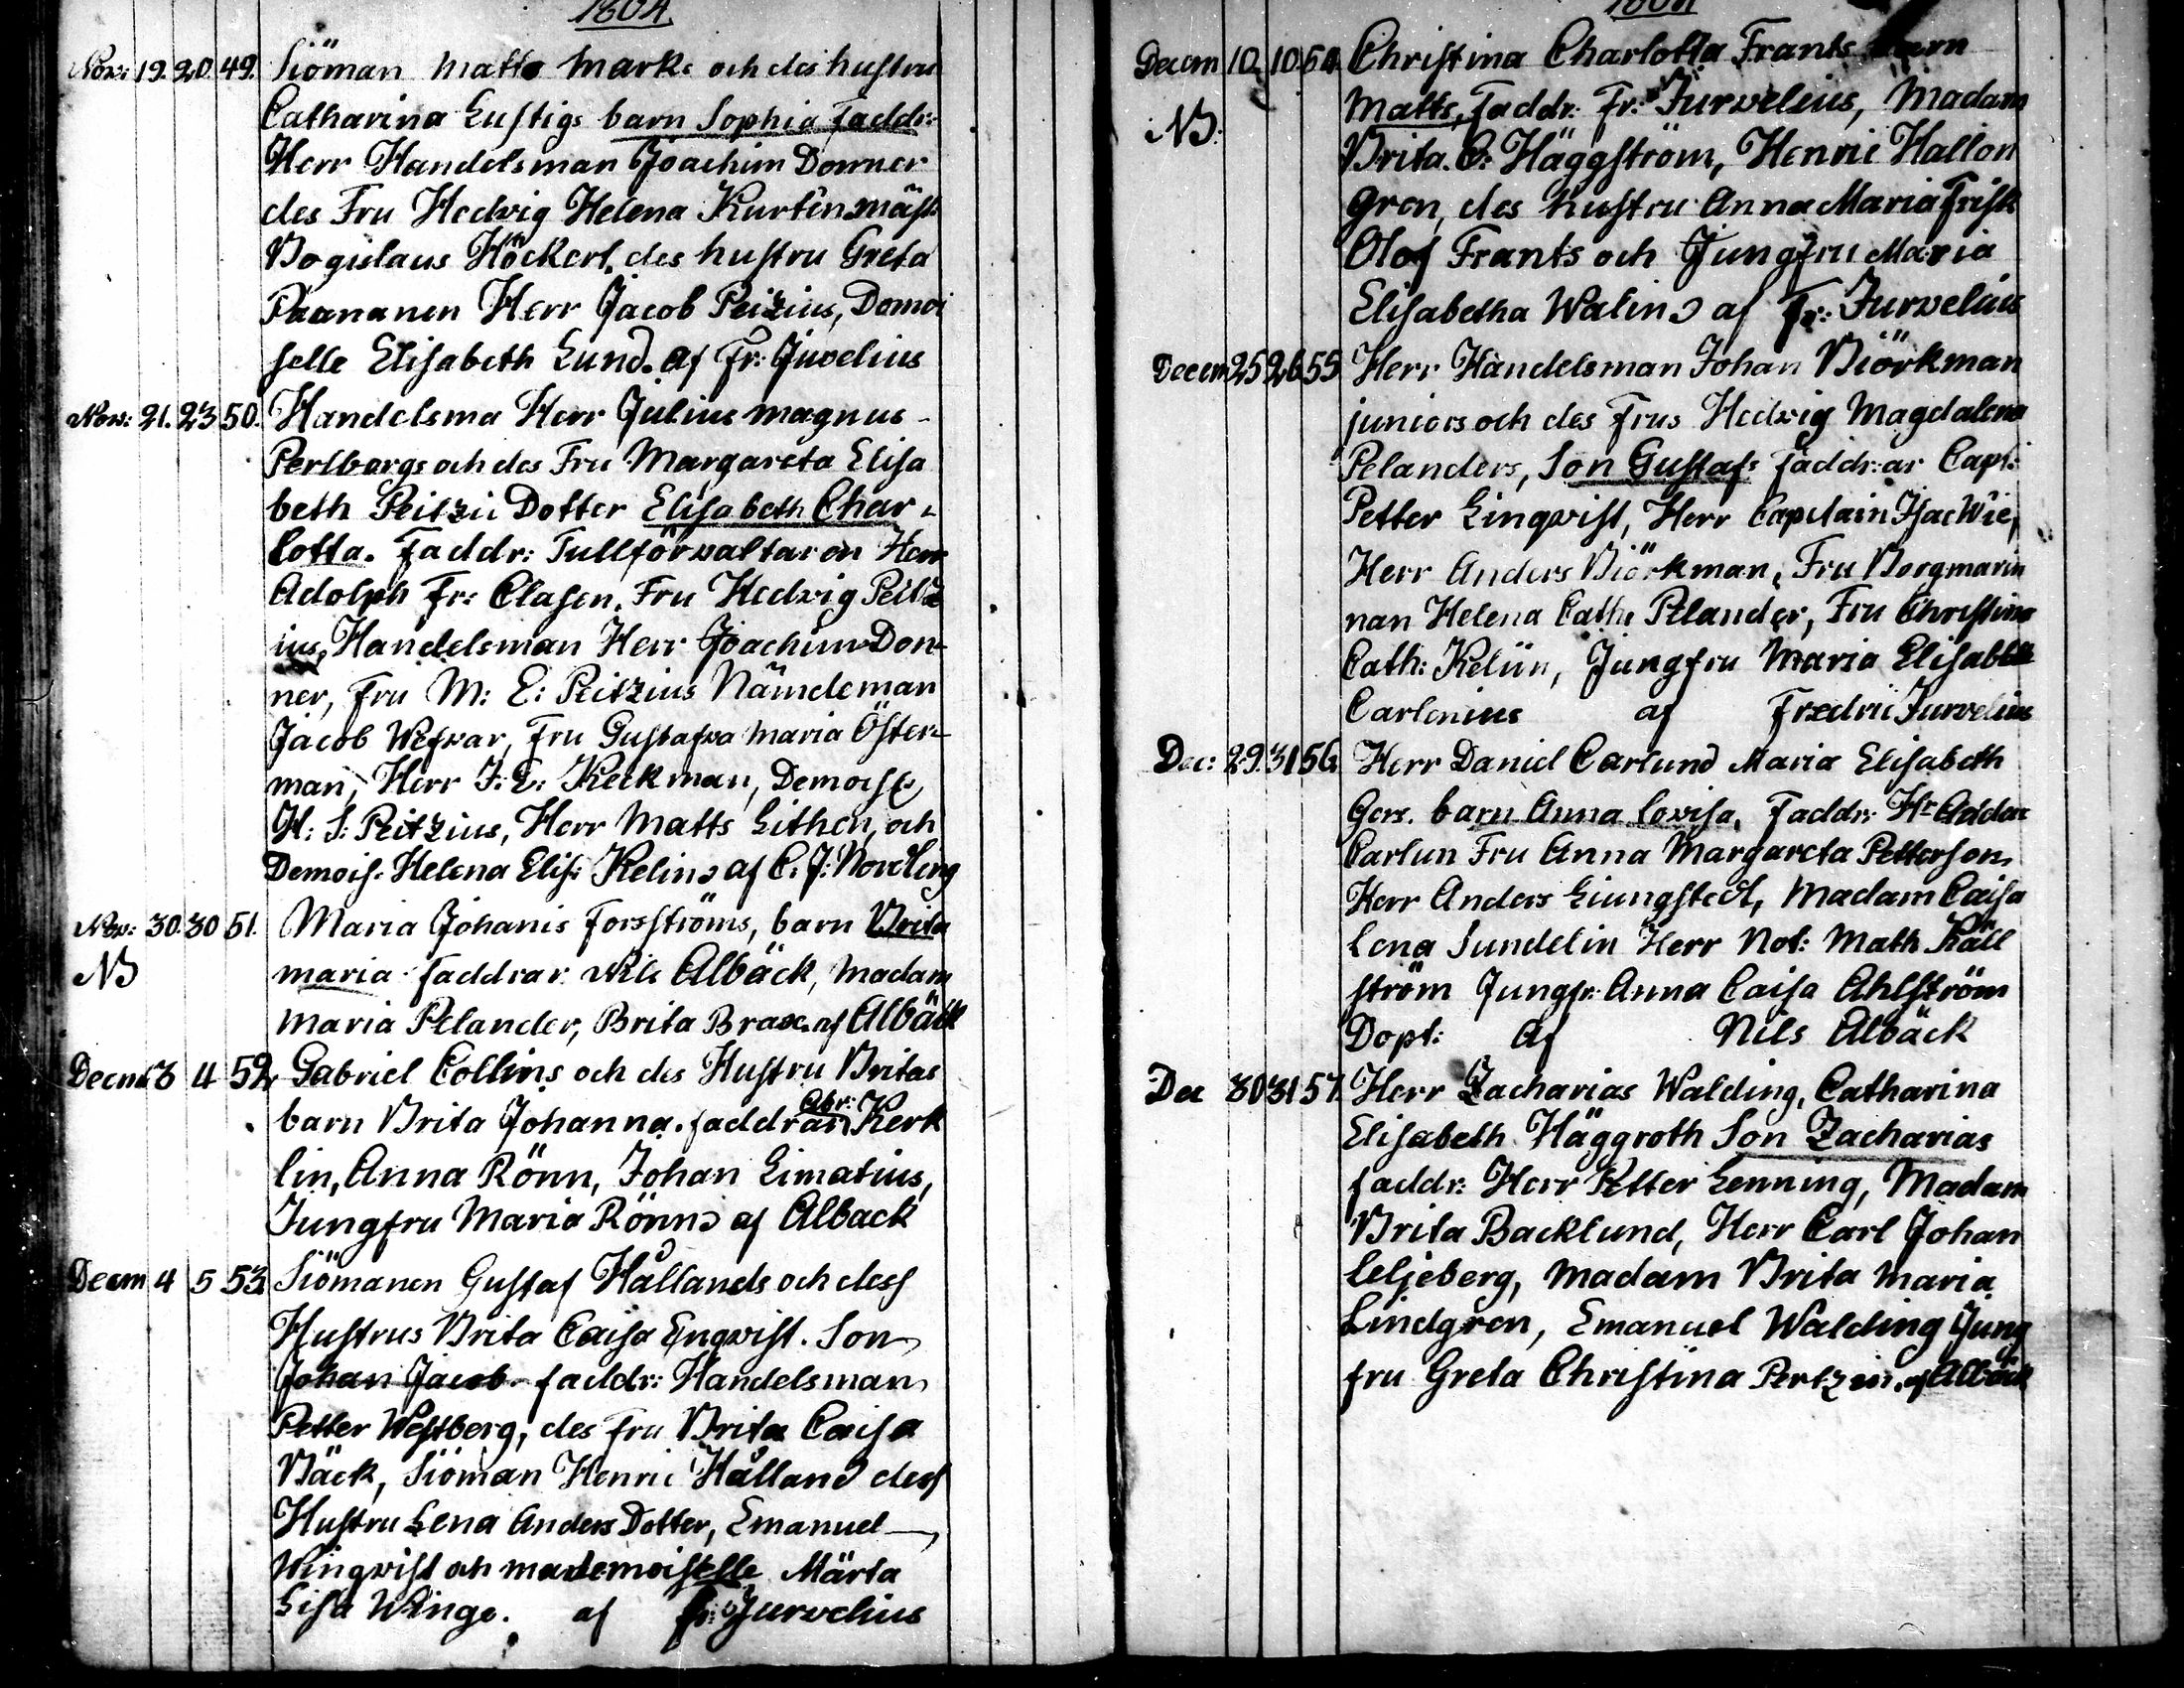 1804.
Nov: 19. 20. 49. Siöman Matts Marks och des hustru
Catharina Lustigs barn Sophia Faddr:
Herr Handelsman Joachim Donner
des Fru Hedvig Helena Kurtén mäst.
Bogislaus Höckert, des hustru Greta
Paananen Herr Jacob Peizius, Demoi
selle Elisabeth Lund. af Fr: Juvelius
Nov: 21. 23 50. Handelsma Herr Julius Magnus
Perlbergs och des Fru Margareta Elisa
beth Peitzii Dotter Elisabeth Char-
lotta. Faddr: Tullförvaltaren Herr
Adolph Fr: Clasen, Fru Hedvig Peitz
ius, Handelsman Herr Joachim Don-
ner, Fru M: E: Peitzius Nämdeman
Jacob Wefvar, Fru Gustafva Maria Öster-
man, Herr J: E: Keckman, Demoise
H: S: Peitzius, Herr Matts Lithen, och
Demois. Helena Elis: Kelin af C. J: Nordling
Nov: 30. 30 51. Maria Johanis Forsströms, barn Brita
NB Maria Faddrar Nils Albäck, Madam
Maria Pelander, Brita Brax. af Albäck
Decm 3 4 52, Gabriel Collins och des Hustru Britas
barn Brita Johanna. faddrar Abr: Kerk
lin, Anna Rönn, Johan Limatius,
Jungfru Maria Rönn af Alback
Decem 4 5 53. Siömanen Gustaf Hållands och dess
Hustrus Brita Caisa Enqvist. Son
Johan Jacob faddr: Handelsman
Petter Westberg, des fru Brita Caisa
Bäck, Siöman Henric Hålland dess
Hustru Lena Anders Dotter, Emanuel
Wingvist och mademoiselle Märta
Lisa Winge. af Fr: Jurvelius
Decem 10. 10. 54. Christina Charlotta Frants barn
NB. Matts, Faddr: Fr: Jurvelius, Madam
Brita. C: Häggström, Henric Hallon
gren, des hustru Anna Maria Frisk
Olof Frants och Jungfru Maria
Elisabetha Walin af Fr: Jurvelius
Decem 25 26 55 Herr Handelsman Johan Biörkman
juniors och des Frus Hedvig Magdalena
Pelanders, Son Gustaf: Faddr:ar Capt:
Petter Linqvist, Herr Capitain Isac Wie,
Herr Anders Biörkman, Fru Borgmarin
nan Helena Cath: Pelander, Fru Christina
Cath: Keliin, Jungfru Maria Elisabth
Carlenius af Fredric Jurvelius
Dec: 29. 31 56. Herr Daniel Carlund Maria Elisabeth
Gers. barn Anna Lovisa. Faddr: Hr Addan
Carlun Fru Anna Margareta Petterson,
Herr Anders Liungstedt, Madam Caisa
Lena Sundelin Herr Not: Math Käll
ström Jungfr: Anna Caisa Ahlström
Dopt: Af Nils Albäck
Dec 30 31 57. Herr Zacharias Walding, Catharina
Elisabeth Häggroth Son Zacharias
faddr: Herr Petter Lenning, Madam
Brita Backlund, Herr Carl Johan
Leljeberg, Madam Brita Maria
Lindgren, Emanuel Walding Jung
fru Greta Christina Pertzin. af Albäck